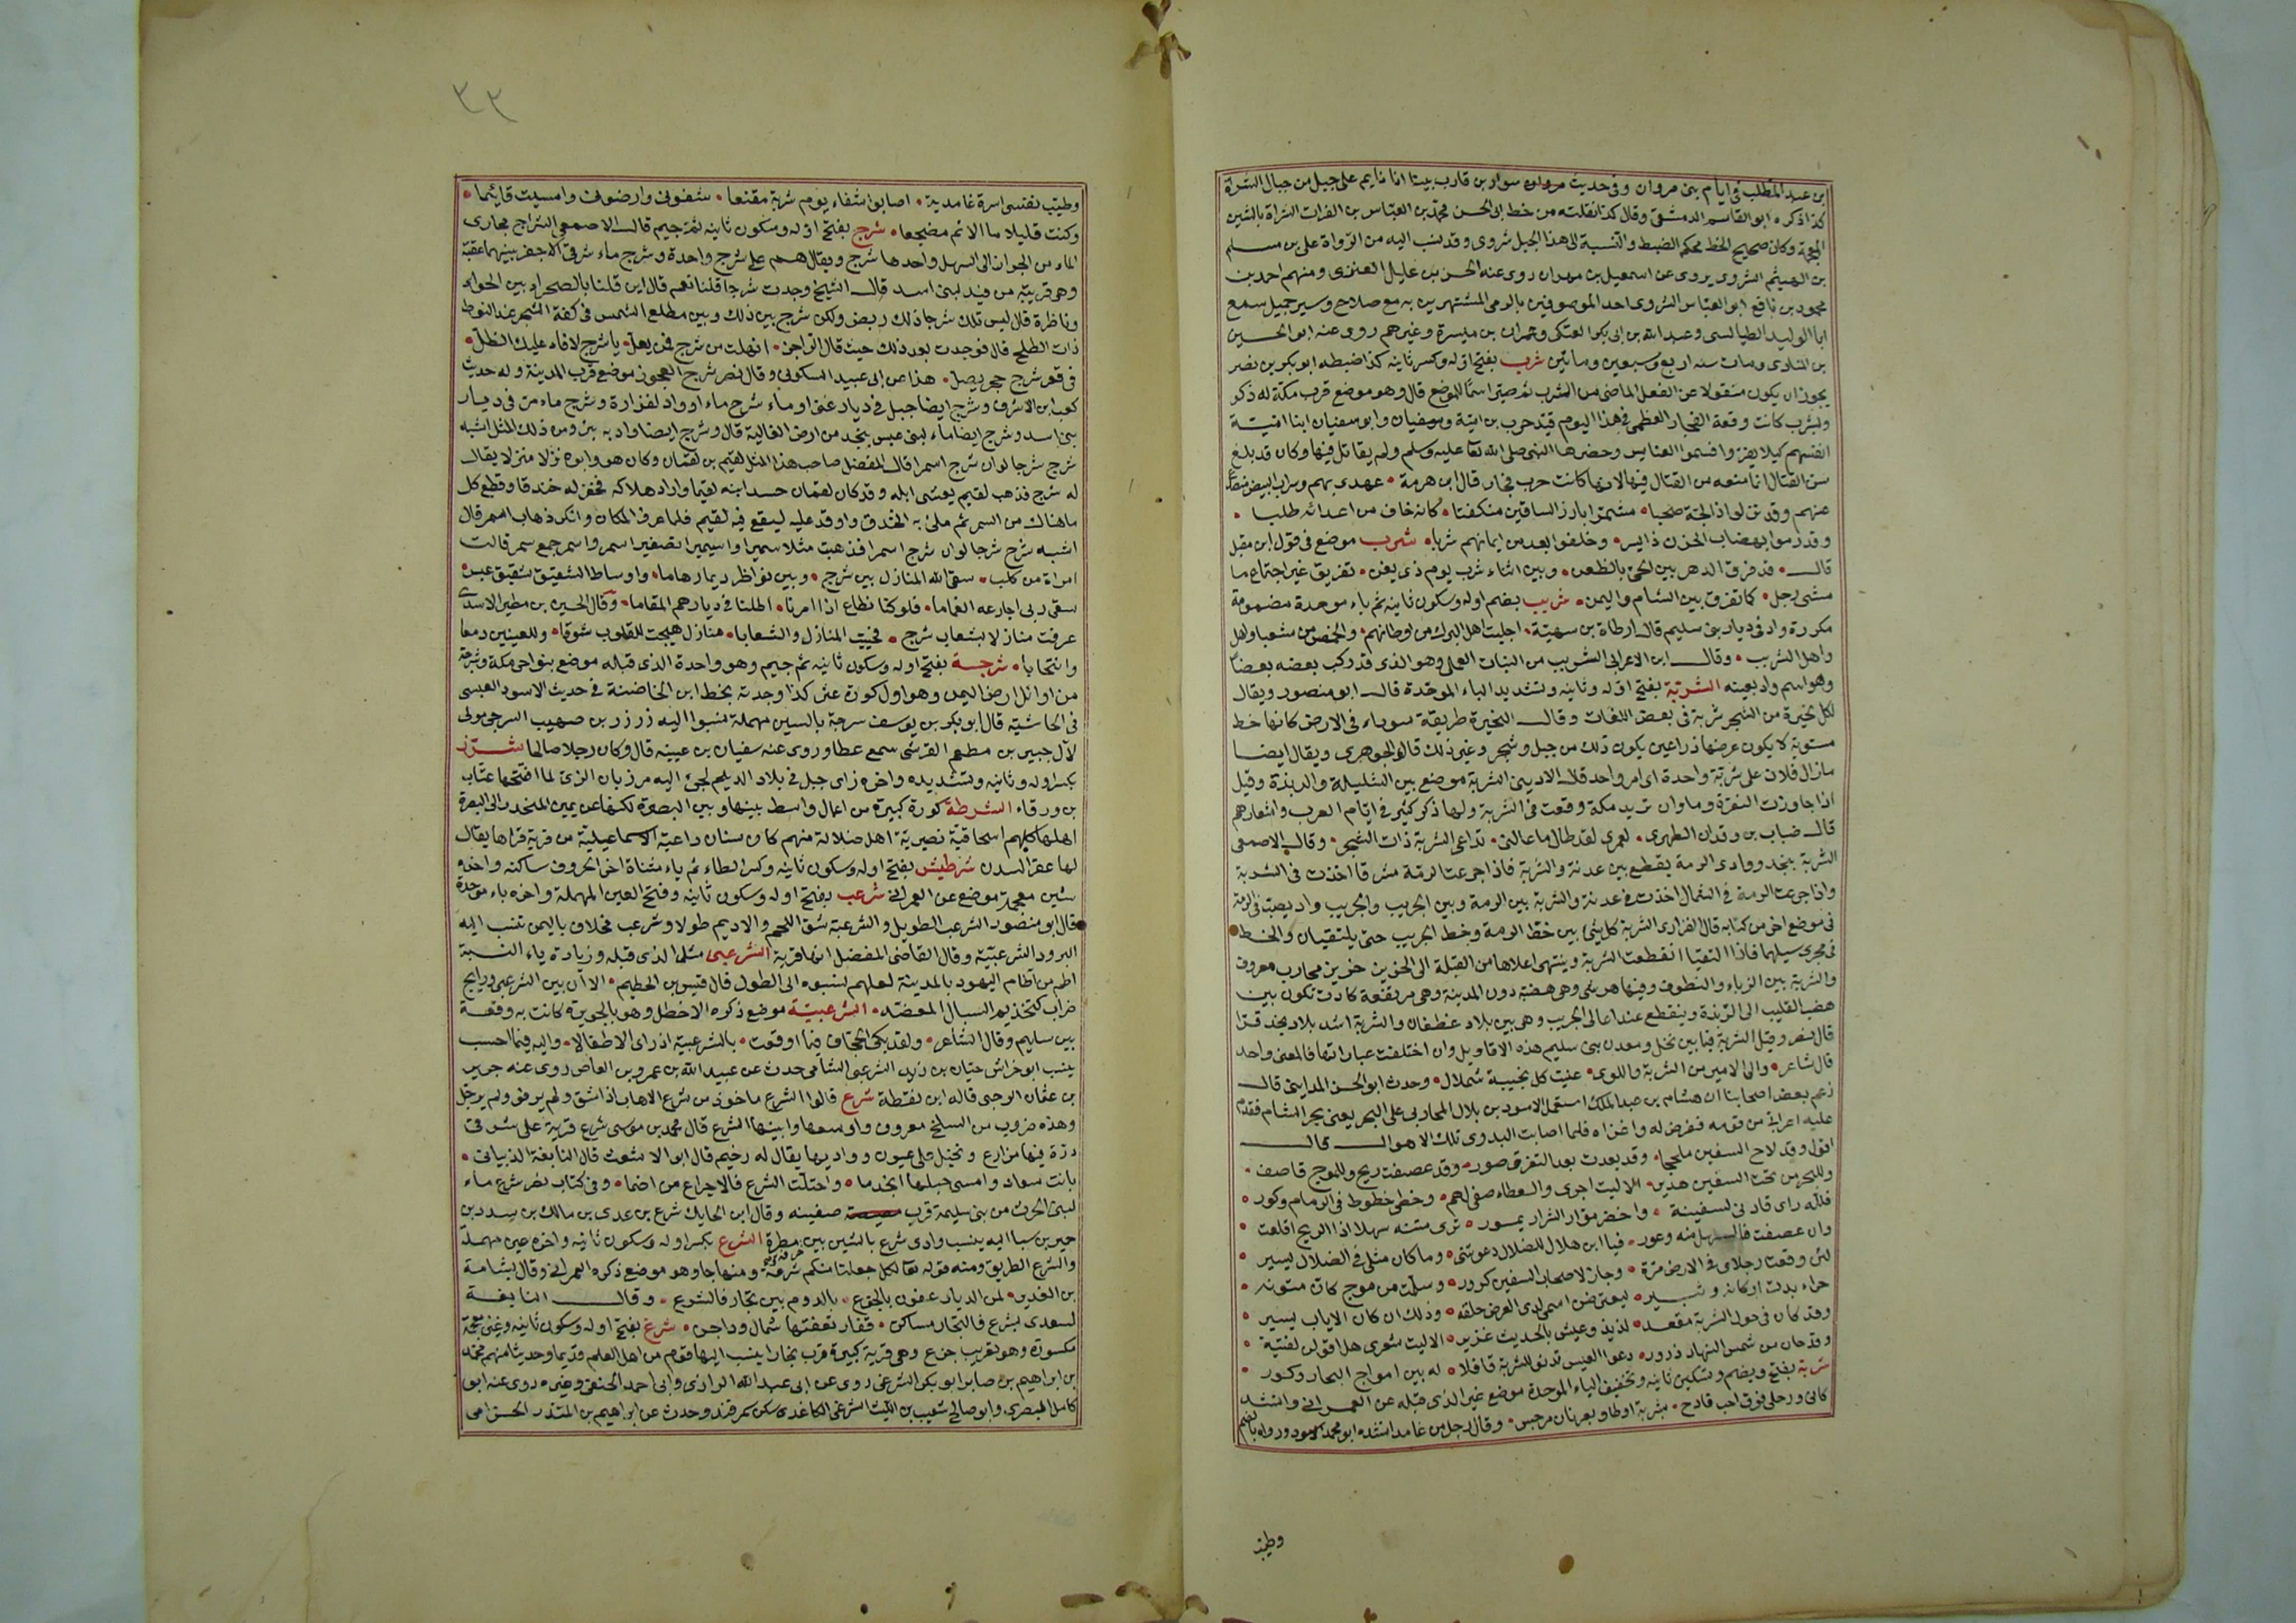 بن عبد المطلب فى ايام بنى مروان وفى حديث سواد بن قارب بينا انا نايم على جبل من جبال الشراة
كذا ذكره ابو القاسم الدمشقى وقال كذا نقلته من خط ابى الحسن محمد بن العباس بن الفرات الشراة بالشين
المعجمة وكان صحيح الخط محكم الضبط والنسبة الى هذا الجبل شروى وقد نسب اليه من الرواة على بن مسلم
بن الهيثم الشروى يروى عن اسمعيل بن مهران روى عنه الحسن بن عليل العنزى ومنهم احمد بن
محمود بن نافع ابو العباس الشروى احد الموصوفين بالرمى المشتهرين به مع صلاح وسير جميل سمع
ابا الوليد الطيالسى وعبد الله بن ابى بكر العتكى وعمران بن ميسرة وغيرهم روى عنه ابو الحسين
بن المنادى ومات سنه اربع وسبعين ومايتين شرب بفتح اوله وكسر ثانيه كذا ضبطه ابو بكر بن نصر
يجوز ان يكون منقولا عن الفعل الماضى من الشرب ثم صير اسما للموضع قال وهو موضع قرب مكة له ذكر
وبشرب كانت وقعة الفجار العظمى فى هذا اليوم قيد حرب بن امية وسفيان وابو سفيان ابنا امية
انفسهم كيلا يفروا فسموا العنابس وحضرها النبى صلى الله تعا عليه وسلم ولم يقاتل فيها وكان قد بلغ
سن القتال انما منعه من القتال فيها لانها كانت حرب فجار قال ابن هرمة • عهدى بهم وسراب البيض
عنهم وقد نزلوا ذا لجة صخبا • مشمرا بارز الساقين منكفتا • كانه خاف من اعدائه طلبا •
وقد رموا بهضاب الحزن ذا يسر • وخلفوا بعد من ايمانهم شربا • شرب موضع فى قول ابن مقبل
قال • قد فرق الدهر بين الحى بالظعن • وبين اثناء شرب يوم ذى يقن • تفريق غير اجتماع ما
مشى رجل • كما تفرق بين الشام واليمن • شربب بضم اوله وسكون ثانيه ثم باء موحدة مضمومة
مكررة واد فى ديار بنى سليم قال ارطاة بن سهية • اجليت اهل البرك من اوطانهم • والحمس من شعبا واهل
واهل الشربب • وقال ابن الاعرابى الشربب من النبات العملى وهو الذى قد ركب بعضه بعضا
وهو اسم واد بعينه الشربة بفتح اوله وثانيه وتشديد الباء الموحدة قال ابو منصور ويقال
لكل نحيرة من الشجر شربة فى بعض اللغات وقال النحيرة طريقة سوداء فى الارض كانها خط
مستوية لا يكون عرضها ذراعين يكون ذلك من جبل وشجر وغير ذلك قال الجوهرى ويقال ايضا
مازال فلان على شربة واحدة اى امر واحد قال الاديبى الشربة موضع بين السليلة والربذة وقيل
اذا جاوزت النقرة وماوان تريد مكة وقعت فى الشربة ولها ذكر كثير فى ايام العرب واشعارهم
قال ضباب بن وقدان الطهوى • لعمرى لقد طال ما غالنى • تداعى الشربة ذات الشجر • وقال الاصمعى
الشربة بنجد ووادى الرمة يقطع بين عدنة والشربة فاذا جزعت الرمة مشرقا اخذت فى الشربة
واذا جزعت الرمة فى الشمال اخذت فى عدنة والشربة بين الرمة وبين الجريب والجريب واد يصب فى الرمة
فى موضع اخر من كتابه قال الفزارى الشربة كل شئ بين خط الرمة وخط الجريب حتى يلتقيان والخط
فى مجرى سيلهما فاذا التقيا انقطعت الشربة وينتهى اعلاها من القبلة الى الحزيز حزيز محارب معروف
والشربة بين الزباء والنطوف وفيها هرشى وهى هضبة دون المدينة وهى مرتفعة كادت تكون بين
هضب القليب الى الربذة وينقطع عند اعالى الجريب وهى بين بلاد غطفان والشربة اشد بلاد نجد قرا
قال نصر وقيل الشربة فيما بين نخل ومعدن بنى سليم هذه الاقاويل وان اختلفت عباراتها فالمعنى واحد
قال شاعر • والى الامير من الشربة واللوى • عنيت كل نجيبة شملال • وحدث ابو الحسن المداينى قال
زعم بعض اصحابنا ان هشام بن عبد الملك استعمل الاسود بن بلال المحاربى على البحر يعنى بحر الشام فقدم
عليه اعرابى من قومه ففرض له واغزاه فلما اصابت البدوى تلك الاهوال قال
اقول وقد لاح السفين ملججا • وقد بعدت بعد التقرب صور • وقد عصفت ريح وللموج قاصف •
وللبحر من تحت السفين هدير • الا ليت اجرى والعطاء صفى لهم • وحظى حظوظ فى الزمام وكور •
فلله راى قادنى لسفينة • واخضر موار الشرار يمور • ترى متنه سهلا اذا الريح اقلعت •
وان عصفت فالسهل منه وعور • فيا ابن هلال للضلال دعوتنى • وما كان مثلى فى الضلال يسير •
لئن وقعت رجلاى فى الارض مرة • وحان لاصحاب السفين كرور • وسلمت من موج كان متونه •
حراء بدت اركانه وثبير • ليعترضن اسمى لدى العرض حلقه • وذلك ان كان الاياب يسير •
وقد كان فى حول الشربة مقعد • لذيذ وعيش بالحديث غزير • الا ليت شعرى هل اقولن لفتية •
وقد حان من شمس النهار ذرور • دعوا العيس تدنو للشربة قافلا • له بين امواج البحار وكور •
شربة بفتح ويضم وتسكين ثانيه وتخفيف الباء الموحدة موضع غير الذى قبله عن العمرانى وانشد
كانى ورحلى فوق احب قادح • بشربة او طاو بعرنان مرجس • وقال رجل من غامد انشده ابو محمد الاسود ورواه بالضم
وطيب
٣٣
وطيب نفسى اسرة غامدية • اصابوا شفاء يوم شربة مقنعا • شفونى وارضونى وامسيت قايما •
وكنت قليلا ما الائم مضجعا • شرج بفتح اوله وسكون ثانيه ثم جيم قال الاصمعى الشراج مجارى
الماء من الحرار الى السهل واحدها شرج ويقال هم على شرج واحدة وشرج ماء شرقى الاجفر بينهما عقبة
وهى قريبة من فيد لبنى اسد قال الشيخ وجدت شرجا قلنا نعم قال اين قلنا بالصحراء بين الجواء
وناظرة قال ليس تلك شرجا ذلك ربض ولكن شرج بين ذلك وبين مطلع الشمس فى كفة الشجر عند النوط
ذات الطلح قال فوجدت بعد ذلك حيث قال الراجز • انهلت من شرج فمن يعل • يا شرج لا فاء عليك الظل •
فى قعر شرج حجر يصل • هذا عن ابى عبيد السكونى وقال نصر شرج العجوز موضع قرب المدينة وله حديث
كعب ابن الاشرف وشرج ايضا جبل فى ديار غنى او ماء شرج ماء او واد لفزارة وشرج ماء مر فى ديار
بنى اسد وشرج ايضا ماء لبنى عبس بنجد من ارض العالية قال وشرج ايضا واد به بئر ومن ذلك المثل اشبه
شرج شرجا لوان شرج اسمرا قال المفضل صاحب هذا المثل لقيم بن لقمان وكان هو وابوه نزلا منزلا يقال
له شرج فذهب لقيم يعشى ابله وقد كان لقمان حسد ابنه لقيما واراد هلاكه فحفر له خندقا وقطع كل
ما هناك من السمر ثم ملئ به الخندق واوقد عليه ليقع فيه لقيم فلما عرف المكان وانكر ذهاب السمر قال
اشبه شرج شرجا لوان شرج اسمرا فذهبت مثلا سميرا واسيمرا تصغير اسمر واسمر جمع سمر قالت
امراة من كلب • سقى الله المنازل بين شرج • وبين نواظر ديما رهاما • واوساط الشقيق شقيق عبس
سقى ربى اجارعه الغماما • فلو كنا نطاع اذا امرنا • اطلنا فى ديارهم المقاما • وقال الحسين بن مطير الاسدى
عرفت منازلا بشعاب شرج • فحييت المنازل والشعابا • منازل هيجت للقلوب شوقا • وللعينين دمعا
وانتحابا • شرجة بفتح اوله وسكون ثانيه ثم جيم وهو واحدة الذى قبله موضع بنواحى مكة وشرجة
من اوائل ارض اليمن وهو اول كورة عثر كذا وجدته بخط ابن الخاضبة فى حديث الاسود العبسى
فى الحاشية قال ابو بكر بن يوسف سرجة بالسين مهملة نسبوا اليه زرزر بن صهيب السرجى مولى
لآل جبير بن مطعم القرشى سمع عطا وروى عنه سفيان بن عيينه قال وكان رجلا صالحا شرز
بكسر اوله وثانيه وتشديده واخره زاى جبل فى بلاد الديلم لجئ اليه مرزبان الرى لما افتتحها عتاب
بن ورقاء الشرطة كورة كبيرة من اعمال واسط بينها وبين البصرة لكنها عن يمين المنحدر الى البصرة
اهلها كلهم اسحاقية نصيرية اهل ضلالة منهم كان سنان داعية الاسماعيلية من قرية قراها يقال
لها عقر السدن شرطيش بفتح اوله وسكون ثانيه وكسر الطاء ثم ياء مثناة اخر الحروف ساكنه واخره
شين معجمة موضع عن العمرانى شرعب بفتح اوله وسكون ثانيه وفتح العين المهملة واخره باء موحدة
قال ابو منصور الشرعب الطويل والشرعبة شق اللحم والاديم طولا وشرعب مخلاف باليمن تنسب اليه
البرود الشرعبية وقال القاضى المفضل انها قرية الشرعبى مثل الذى قبله وزيادة ياء النسبة
اطم من آطام اليهود بالمدينة لعلهم نسبوه الى الطول قال قيس بن الخطيم • الا ان بين الشرعبى وراتج
ضراب كتخذيم السيال المعضد • الشرعبية موضع ذكره الاخطل وهو بالجزيرة كانت به وقعة
بين سليم وقال الشاعر • ولقد بكى الجحاف فيما اوقعت • بالشرعبية اذ راى الاطفالا • واليه فيما احسب
ينسب ابو خراش حيان بن زيد الشرعبى الشامى حدث عن عبيد الله بن عمرو بن العاص روى عنه جرير
بن عثمان الرحبى قاله ابن نقطة شرع قالوا الشرع ماخوذ من شرع الاهاب اذا شق ولم يرقق ولم يرجل
وهذه ضروب من السلخ معروف واوسعها وابينها الشرع قال محمد بن موسى شرع قرية على شرقى
درة فيها مزارع ونخيل على عيون وواديها يقال له رخيم قال ابو الاشعث قال النابغة الذبيانى •
بانت سعاد وامسى حبلها انجذما • واحتلت الشرع فالاجراع من اضما • وفى كتاب نصر شرع ماء
لبنى الحرث من بنى سليمة قرب صفينه وقال ابن الحايك شرع بن عدى بن مالك بن سدد بن
حمير بن سبا اليه ينسب وادى شرع بالشين بين مطرة الشرع بكسر اوله وسكون ثانيه واخره عين مهملة
والشرع الطريق ومنه قوله تعا لكل جعلنا منكم شرعة ومنهاجا وهو موضع ذكره العمرانى وقال بشامة
بن الغدير • لمن الديار عفون بالجزع • بالدوم بين بحار فالشرع • وقال النابغة
لسعدى بشرع فالبحار مساكن • قفار تعفتها شمال وداجن • شرغ بفتح اوله وسكون ثانيه وغين معجمة
مكسورة وهو تعريب جرغ وهى قرية كبيرة قرب بخارا ينسب اليها قوم من اهل العلم قديما وحديثا منهم محمد
بن ابراهيم بن صابر ابو بكر الشرغى روى عن ابى عبد الله الرازى وابى احمد الحنفى وغيره روى عنه ابو
كامل البصرى وابو صالح شعيب بن الليث الشرغى الكاغدى سكن سمرقند وحدث عن ابراهيم بن المنذر الحزامى